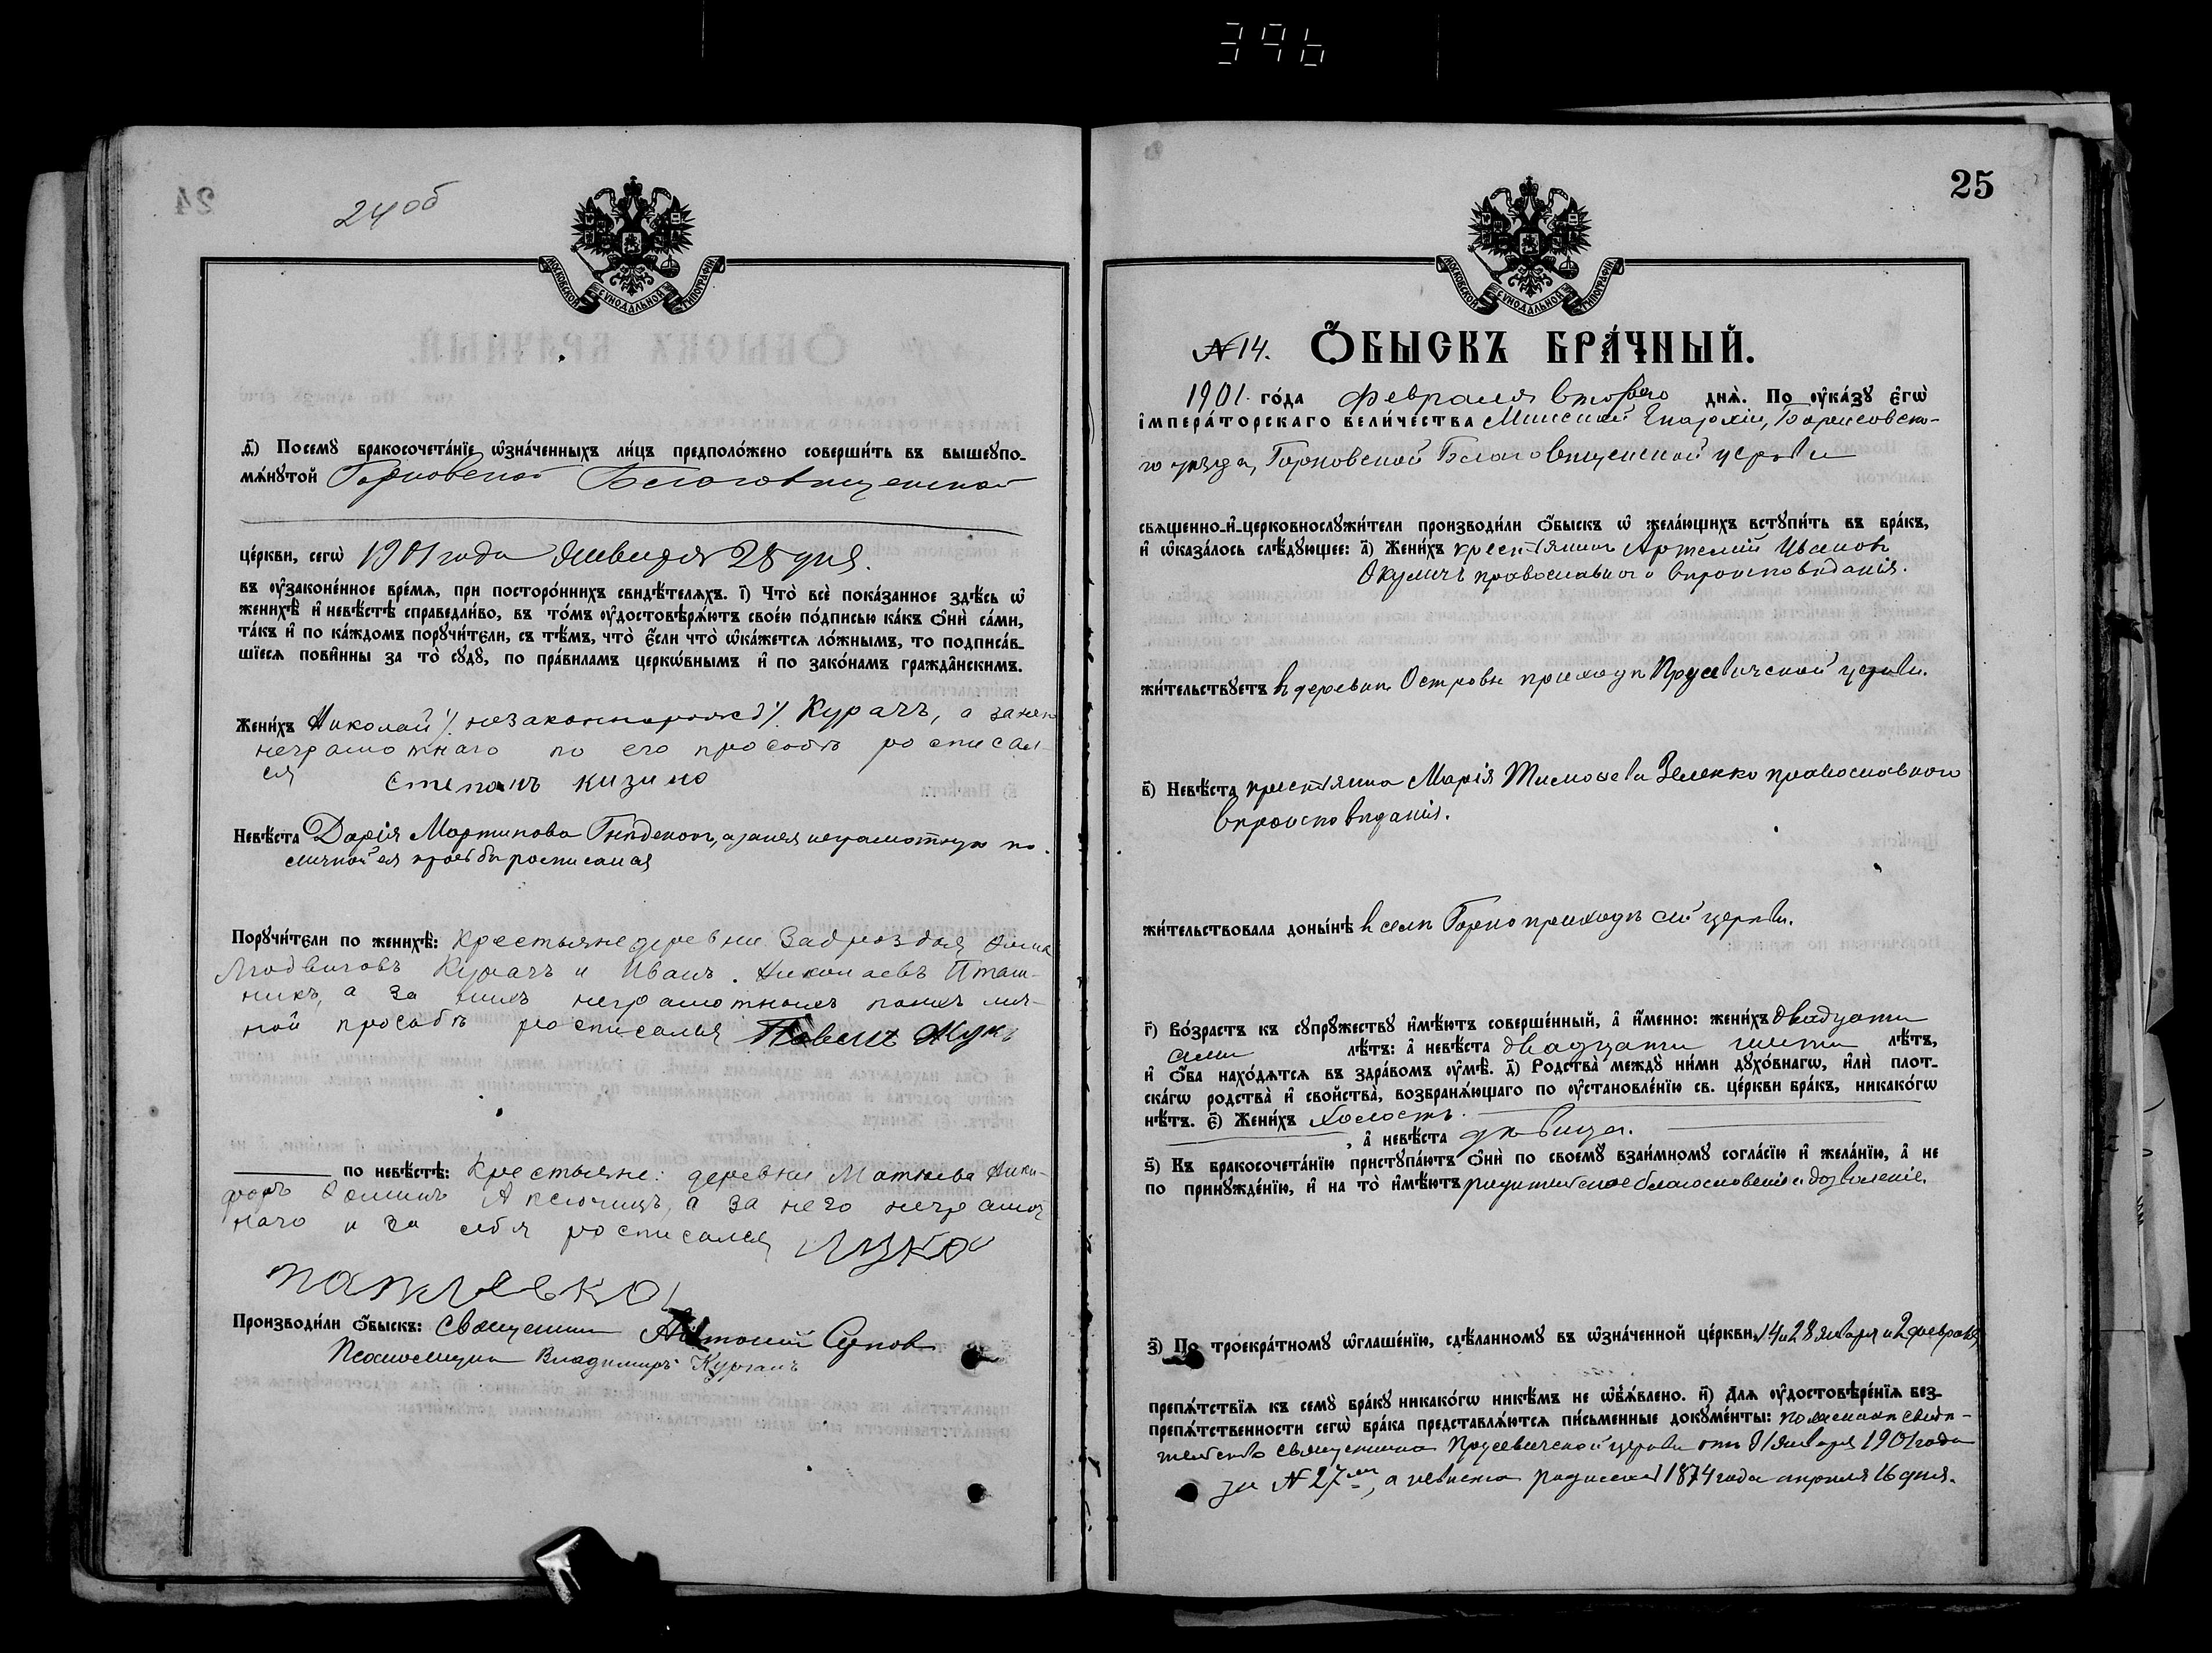 396
24
24 об
МОСКОВСКОЙ СУНОДАЛЬНОЙ ТИПОГРАФІИ
д҃і) Посемꙋ бракосочета́нїе ѡ҆зна́ченныхъ ли́цъ предполо́жено соверши́ть въ вышеꙋпо-
мѧ́нꙋтой Горновской Благовѣщенской
це́ркви, сегѡ̀ 1901 года Января 28 дня.
въ ᲂу҆законе́нное вре́мѧ, при посторо́ннихъ свидѣ́телѧхъ. і҃) Что̀ всѐ пока́занное здѣ́сь ѡ҆
женихѣ̀ и҆ невѣ́стѣ справедли́во, въ то́мъ ᲂу҆достовѣрѧ́ютъ свое́ю по́дписью ка́къ ѻ҆нѝ са́ми,
та́къ и҆ по ка́ждомъ порꙋчи́тели, съ тѣ́мъ, что̀ є҆́сли что̀ ѡ҆ка́жетсѧ ло́жнымъ, то подписа́в-
шїесѧ пови́нны за то̀ сꙋдꙋ̀, по пра́виламъ церкѡ́внымъ и҆ по зако́намъ гражда̑нскимъ.
Жени́хъ Николай /незаконнорожд/ Курачъ, а за него
неграмотнаго по его просьбѣ росписал-
ся Степанъ Кизино
Невѣ́ста Дарія Мартинова Гнѣденок, а за нея неграмотную по
личной ея просьбѣ росписался
Порꙋчи́тели по женихѣ̀: Крестьяне деревни Задроздья
Людвиговъ Курачъ и Иванъ Николаевъ Пташ-
никъ, а за нихъ неграмотныхъ по ихъ лич-
ной просьбѣ росписался Павелъ Жукъ
по невѣ́стѣ: Крестьяне: деревни Матіева Ники-
форъ Аксючицъ, а за него неграмот
наго и за себя росписался
Производи́ли ѻ҆́быскъ: Священникъ Антоній Сулков
Псаломщикъ Владимиръ Курганъ
25
МОСКОВСКОЙ СУНОДАЛЬНОЙ ТИПОГРАФІИ
№ 14. Ѻ҆́БЫСКЪ БРА́ЧНЫЙ.
1901. го́да Февраля второго днѧ̀. По ᲂу҆ка́зꙋ є҆гѡ̀
і҆мпера́торскагѡ вели́чества Минской Епархіи, Борисовска-
го уѣзда, Горновской Благовѣщенской церкви
свѧщенно-и҆-церковнослꙋжи́тели производи́ли ѻ҆́быскъ ѡ҆ жела́ющихъ вступи́ть въ бра́къ,
и҆ ѡ҆каза́лось слѣ́дꙋющее: а҃) Жени́хъ крестьянинъ Артемій Ивановъ
Окуличъ православнаго вѣроисповѣданія.
жи́тельствꙋетъ въ деревнѣ Островѣ прихода Прусевичской церкви.
в҃) Невѣ́ста крестьянка Марія Тимоѳеева Зеленко православного
вѣроисповѣданія.
жи́тельствовала доны́нѣ въ селѣ Горно прихода сей церкви.
г҃) Во́зрастъ къ сꙋпрꙋ́жествꙋ и҆мѣ́ютъ соверше́нный, а҆ и҆́менно: жени́хъ двадцати
семи лѣ́тъ: а҆ невѣ́ста двадцати шести лѣ́тъ,
и҆ ѻ҆́ба нахо́дѧтсѧ въ здра́вомъ ᲂу҆мѣ̀. д҃) Родства̀ междꙋ̀ ни́ми дꙋхо́внагѡ, и҆лѝ плот-
ска́гѡ родства̀ и҆ свойства̀, возбранѧ́ющаго по ᲂу҆становле́нїю св. це́ркви бра́къ, никако́гѡ
нѣ́тъ. є҃) Жени́хъ холостъ.
, а҆ невѣ́ста дѣвица.
ѕ҃) Къ бракосочета́нїю пристꙋпа́ютъ ѻ҆нѝ по своемꙋ̀ взаи́мномꙋ согла́сїю и҆ жела́нїю, а҆ не
по принꙋжде́нїю, и҆ на то̀ и҆мѣ́ютъ родительское благословеніе и дозволеніе.
з҃) По троекра́тномꙋ ѡ҆глаше́нїю, сдѣ́ланномꙋ въ ѡ҆зна́ченной це́ркви, 14 и 28 января и 2 февраля
препѧ́тствїѧ къ семꙋ̀ бра́кꙋ никако́гѡ никѣ́мъ не ѡ҆б̾ѧ́влено. и҃) Длѧ ᲂу҆достовѣре́нїѧ без-
препѧ́тственности сегѡ̀ бра́ка представлѧ́ютсѧ пи́сьменные докꙋме́нты: свидѣ-
тельство священника Прусевичской церкви отъ 31 января 1901 года
за № 27, а невѣста родилась 1874 года апрѣля 16 дня.